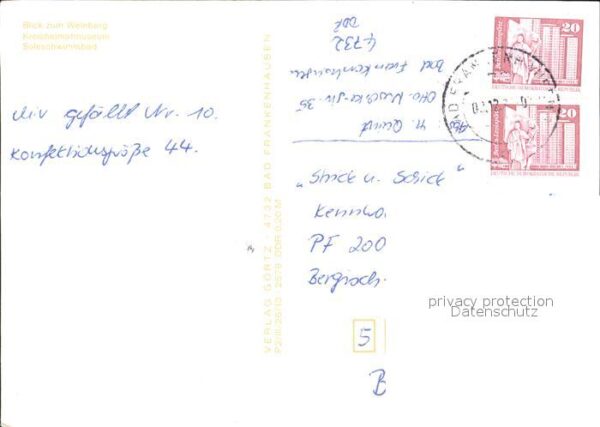 Blick zum Weinberg
Kreisheimatmuseum
Soleschwimmbad
mir gefällt Nr. 10.
Konfektionsgröße 44.
VERLAG GÖRTZ · 4732 BAD FRANKENHAUSEN
DDR 0,20 M
H.
Otto-
-Str. 35
Bad Frankenhausen
4732
DDR
20
DEUTSCHE DEMOKRATISCHE REPUBLIK
20
DEUTSCHE DEMOKRATISCHE REPUBLIK
BAD FRANKENHAUSEN
"Strick u. Schick"
Kennwo.
PF 200
Bergisch.
privacy protection
Datenschutz
5
B